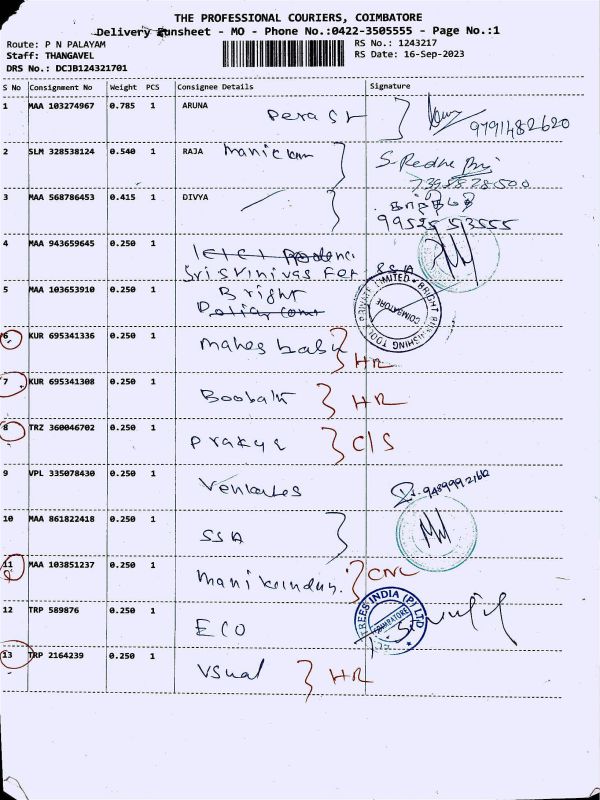 THE PROFESSIONAL COURIERS, COIMBATORE
Delivery Runsheet - MO - Phone No.:0422-3505555 - Page No.:1
Route: P N PALAYAM
RS No.: 1243217
Staff: THANGAVEL
RS Date: 16-Sep-2023
DRS No.: DCJB124321701
S No Consignment No Weight PCS Consignee Details Signature
1 MAA 103274967 0.785 1 ARUNA
9791482620
2 SLM 328538124 0.540 1 RAJA Manickam
3 MAA 568786453 0.415 1 DIVYA
4 MAA 943659645 0.250 1
Sri Srinivas Fer SSA
5 MAA 103653910 0.250 1 Bright
BRIGHT BURNISHING TOOLS PRIVATE LIMITED
COIMBATORE
6 KUR 695341336 0.250 1 Mahes babu HR
7 KUR 695341308 0.250 1 Boobalh HR
8 TRZ 360046702 0.250 1 C/S
9 VPL 335078430 0.250 1 Venkates
10 MAA 861822418 0.250 1 SSA
11 MAA 103851237 0.250 1 CNL
12 TRP 589876 0.250 1 ECO
TREES INDIA (P) LTD
COIMBATORE
13 TRP 2164239 0.250 1 Vsual HR